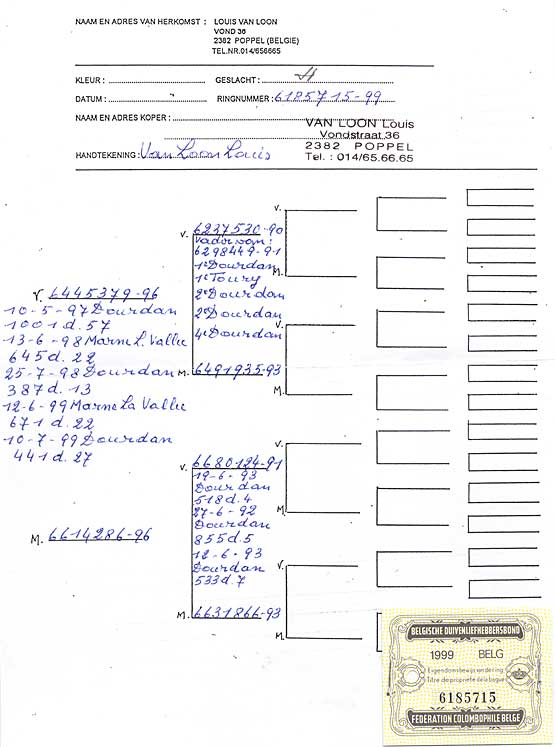 NAAM EN ADRES VAN HERKOMST : LOUIS VAN LOON
VOND 36
2382 POPPEL (BELGIE)
TEL.NR.014/656665
KLEUR : GESLACHT :
DATUM : RINGNUMMER : 6185715-99
NAAM EN ADRES KOPER :
VAN LOON Louis
Vondstraat 36
2382 POPPEL
Tel. : 014/65.66.65
HANDTEKENING : Van Loon Louis
V. 6445379-96
10-5-97 Dourdan
1001 d. 57
13-6-98 Marne L Vallee
645 d. 22
25-7-98 Dourdan
387 d. 13
12-6-99 Marne La Vallee
671 d. 22
10-7-99 Dourdan
441 d. 27
M. 6614286-96
V. 6237530-90
Vader van:
6298449-91
1e Dourdan
1e Toury
2e Dourdan
2e Dourdan
4e Dourdan
M. 6491935-93
V. 6680124-91
19-6-93
Dourdan
518 d. 4
27-6-92
Dourdan
855 d. 5
12-6-93
Dourdan
533 d. 7
M. 6631866-93
V.
M.
V.
M.
V.
M.
V.
M.
BELGISCHE DUIVENLIEFHEBBERSBOND
1999 BELG
Eigendomsbewijs van de ring
Titre de propriété de la bague
6185715
FEDERATION COLOMBOPHILE BELGE